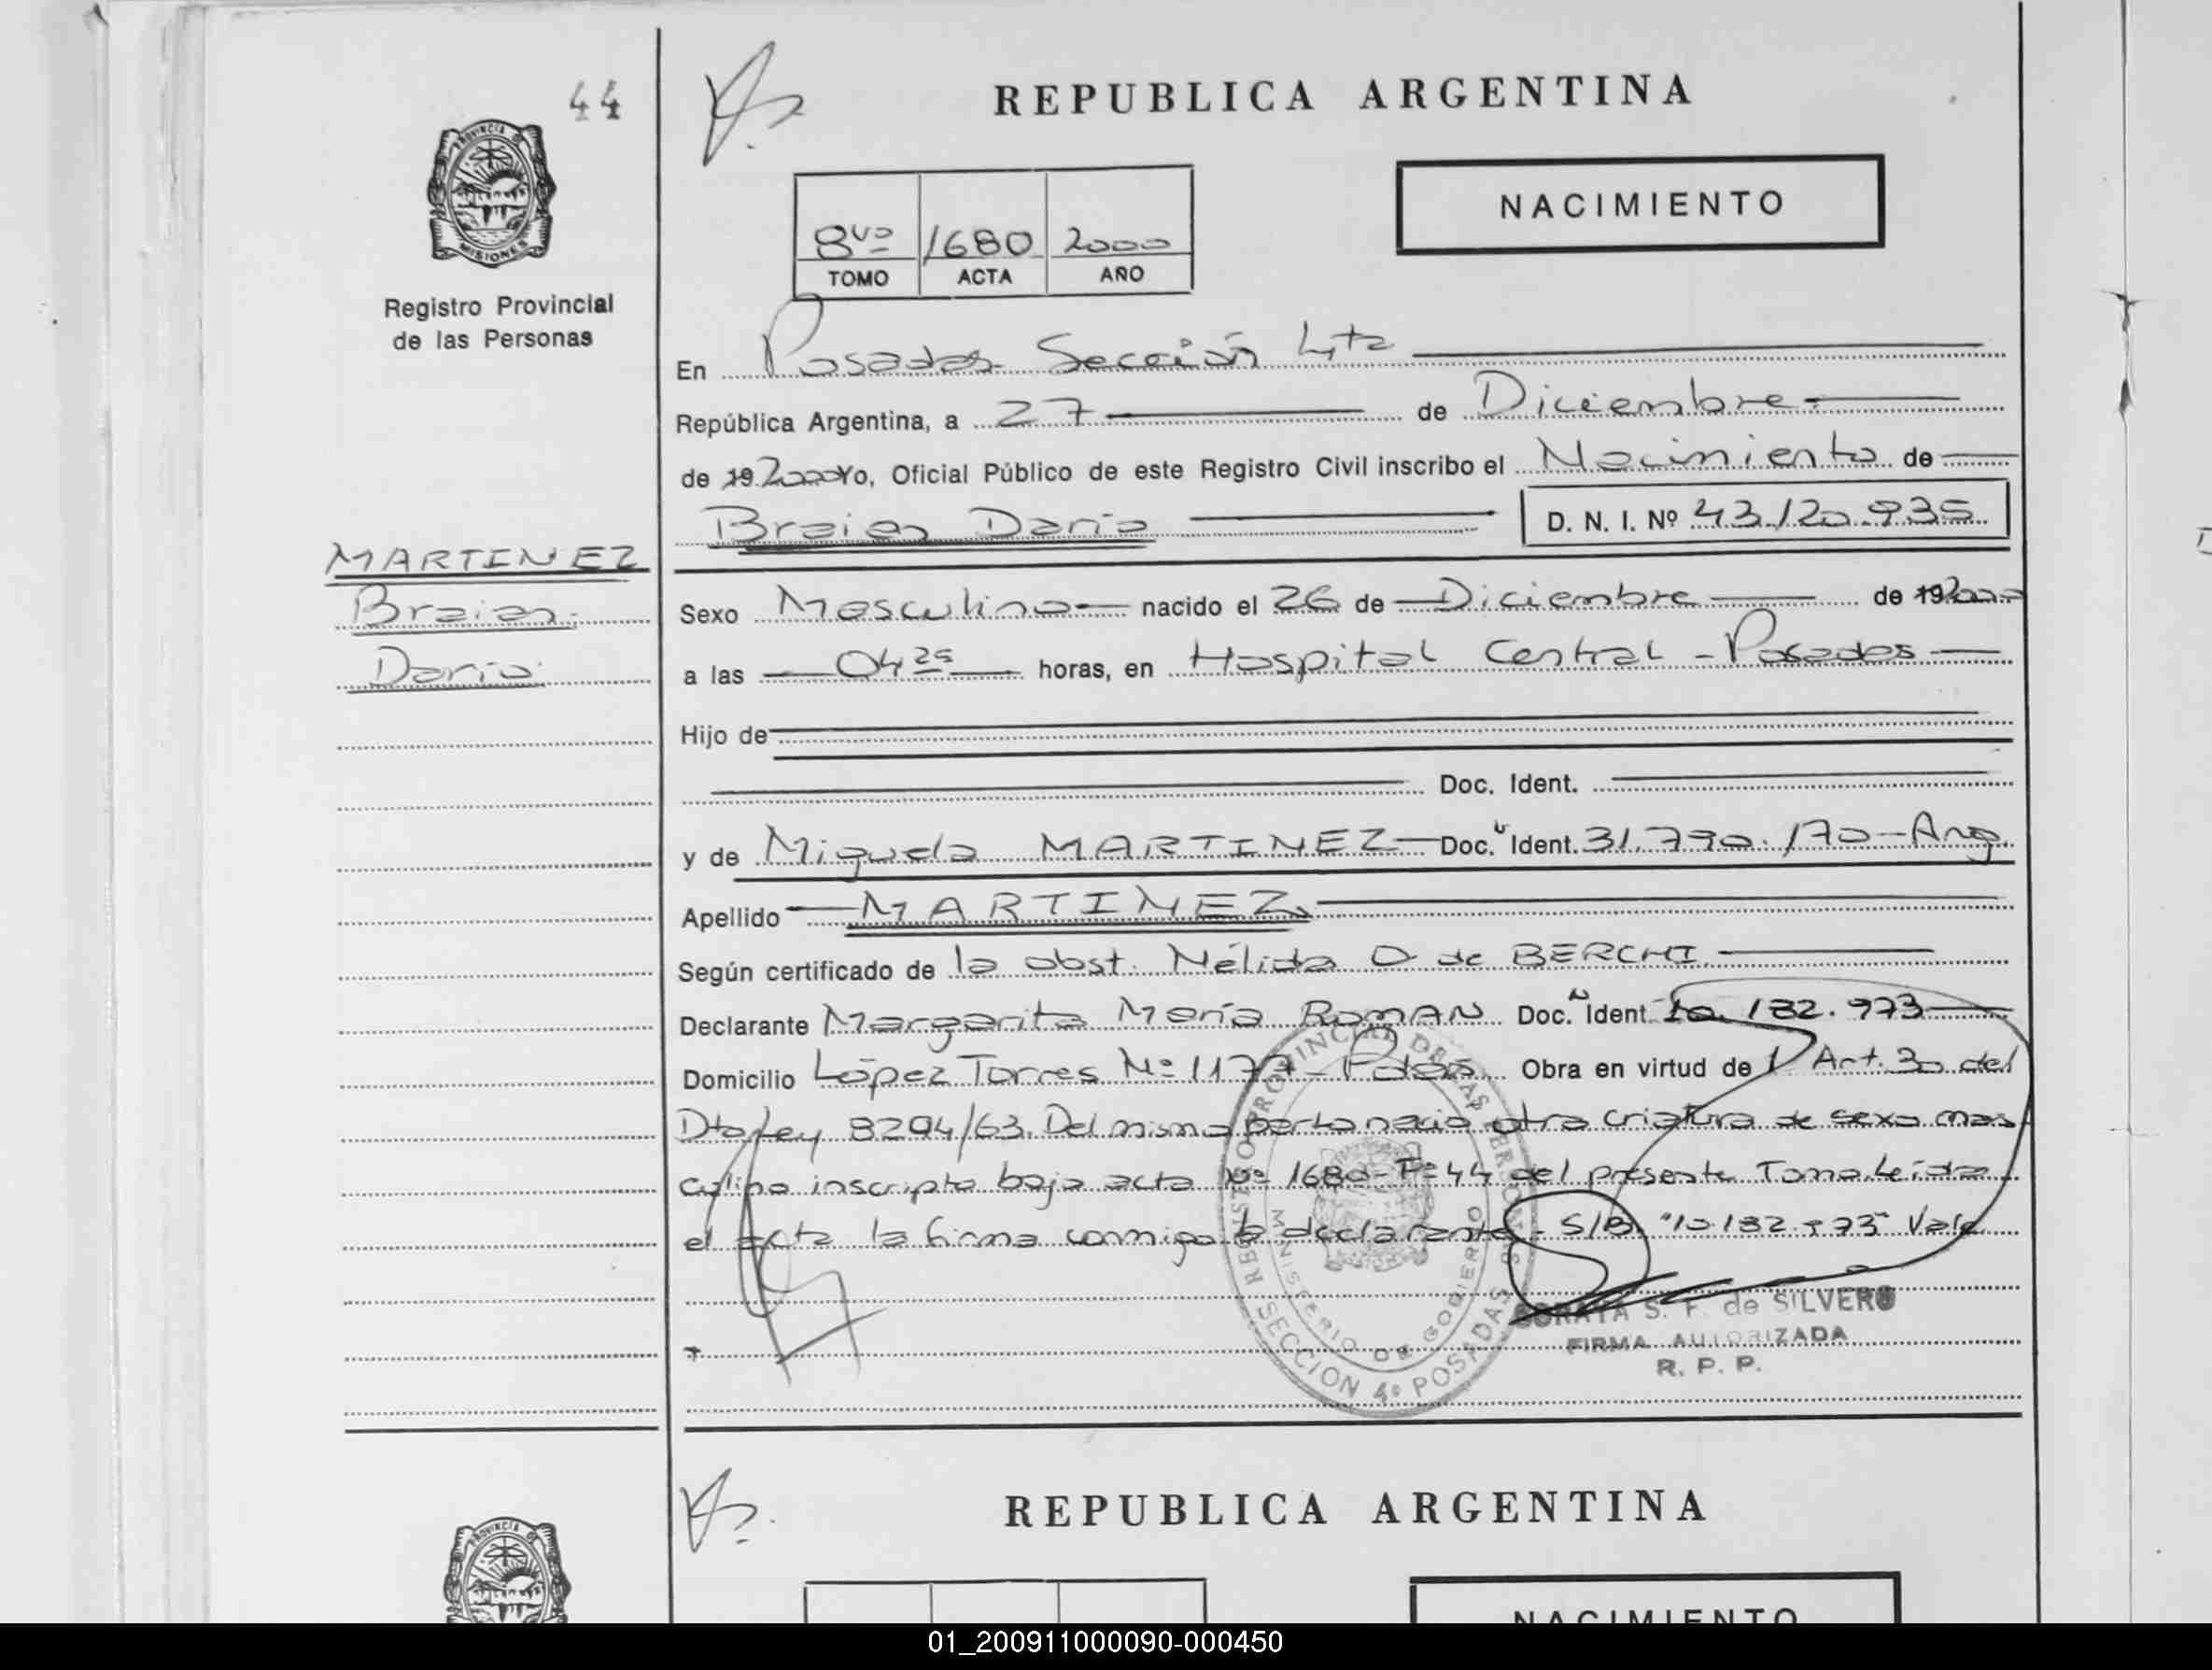 44
REPUBLICA ARGENTINA
PROVINCIA DE
MISIONES
Registro Provincial
de las Personas
NACIMIENTO
8vo 1680 2000
TOMO ACTA AÑO
En Posadas Sección 4ta
República Argentina, a 27 de Diciembre
de 19 2000 Yo, Oficial Público de este Registro Civil inscribo el Nacimiento de
Braian Dario
D. N. I. Nº 43.120.935
MARTINEZ
Braian
Dario
Sexo Masculino nacido el 26 de Diciembre de 19 2000
a las 04 25 horas, en Hospital Central - Posadas
Hijo de
Doc. Ident.
y de Miguela MARTINEZ Doc. Ident. 31.790.170 - Arg.
Apellido MARTINEZ
Según certificado de la obst. Nélida O de BERCHI
Declarante Margarita María ROMAN Doc. Ident 10.182.973
Domicilio López Torres Nº 1177 - Pdas Obra en virtud de Art. 30 del
Dto Ley 8204/63. Del mismo parto nació otra criatura de sexo mas
culino inscripto bajo acta Nº 1680 - Fº 44 del presente Tomo. Leída
el acta la firma conmigo la declarante - S/B "10.182.973" Vale
REGISTRO PROVINCIAL DE LAS PERSONAS
MINISTERIO DE GOBIERNO
SECCION 4º POSADAS
SORAYA S. F. de SILVERO
FIRMA AUTORIZADA
R. P. P.
REPUBLICA ARGENTINA
PROVINCIA DE
NACIMIENTO
01_200911000090-000450